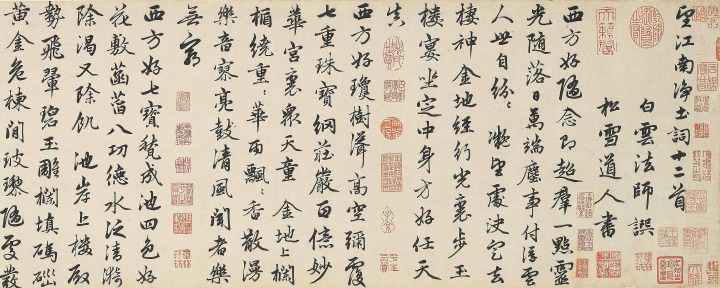 望江南淨土詞十二首
白雲法師譔
松雪道人書
西方好隨念即超羣一點靈
光随落日萬端塵事付浮雲
人世自紛〻凝望處決定去
棲神金地經行光裏步玉
樓宴坐定中身方好任天
真
西方好瓊樹聳高空彌覆
七重珠寶網莊嚴百億妙
華宮裏眾天童金地上欄
楯繞重〻華雨飄〻香散漫
樂音寥亮鼓清風聞者樂
無窮
西方好七寶甃成池四色好
花敷菡萏八功德水泛清漪
除渴又除飢池岸上樓殿
勢飛翬碧玉雕欄填碼碯
黃金危棟間玻瓈隨處發